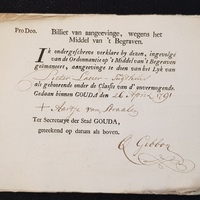 Pro Deo. Billiet van aangeevinge, wegens het
Middel van 't Begraven.
Ik ondergeschreve verklare by dezen, ingevolge
van de Ordonnantie op 't Middel van 't Begraven
geëmaneert, aangeevinge te doen van het Lyk van
Pieter
als gehoorende onder de Classe van d' onvermogende.
Gedaan binnen GOUDA den 26 April 1791
van Straaten
Ter Secretarye der Stad GOUDA,
geteekend op datum als boven.